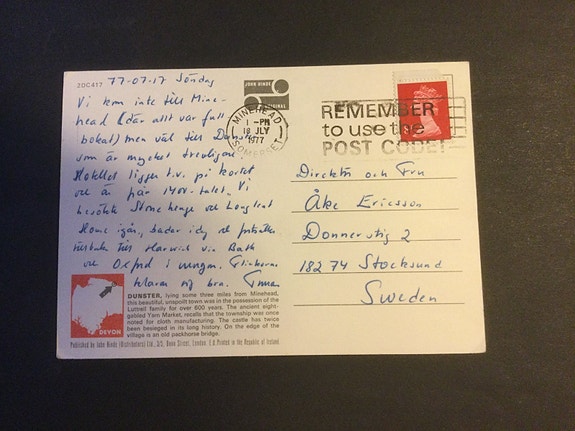 2DC417
77-07-17 Söndag
Vi kom inte till Mine-
head (där allt var full
bokat) men väl till Dunster
som är mycket trevligare
Hotellet ligger t.v. på kortet
och är från 1400-talet. Vi
besökte Stonehenge och Longleat
House igår, badar idag och fortsätter
till Harwich via Bath
och Oxford i morgon.
klarar sig bra.
JOHN HINDE
ORIGINAL
MINEHEAD
1 - PM
18 JLY
1977
SOMERSET
REMEMBER
to use the
POST CODE!
Direktör och Fru
Åke Ericsson
Donnerstig 2
182 74 Stocksund
Sweden
DEVON
DUNSTER, lying some three miles from Minehead,
this beautiful, unspoilt town was in the possession of the
Luttrell family for over 600 years. The ancient eight-
gabled Yarn Market, recalls that the township was once
noted for cloth manufacturing. The castle has twice
been besieged in its long history. On the edge of the
village is an old packhorse bridge.
Published by John Hinde (Distributors) Ltd., Dean Street, London. Printed in the Republic of Ireland.